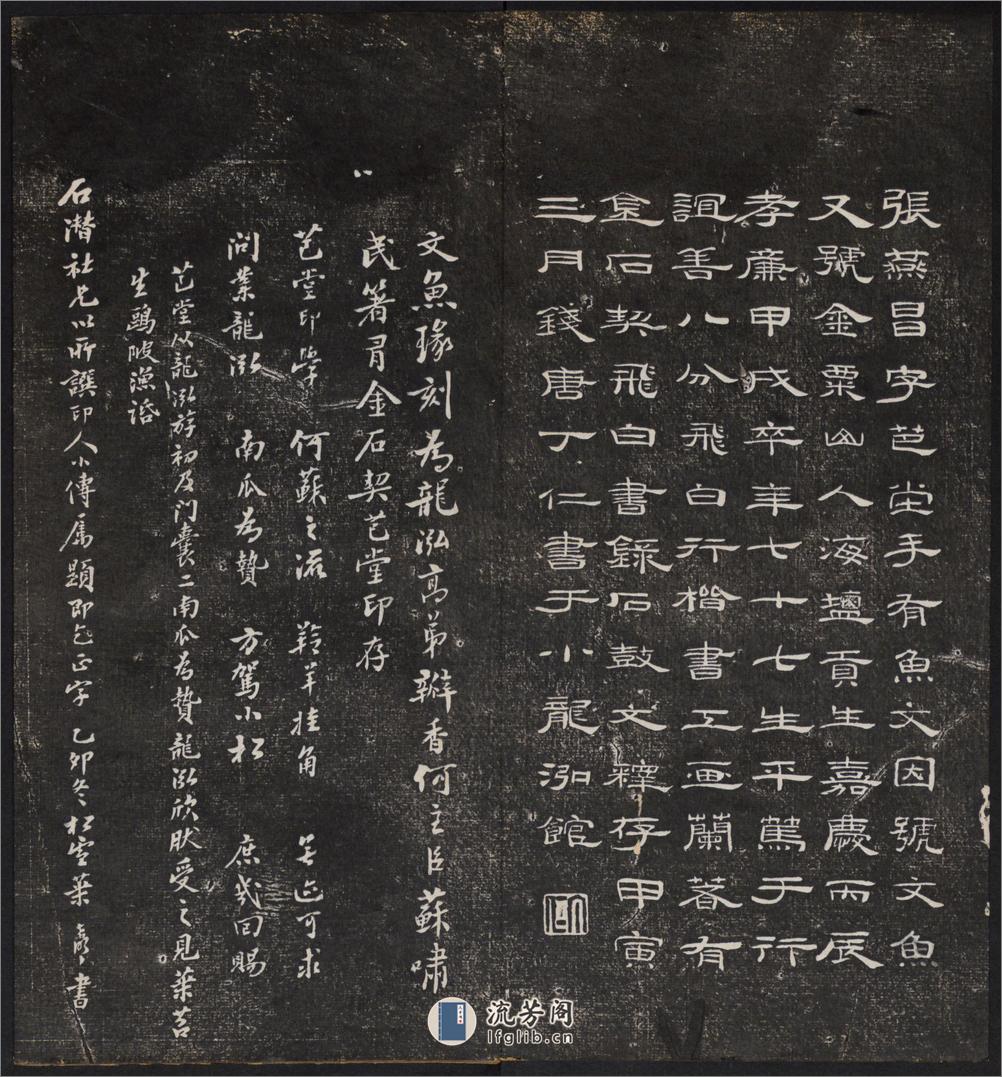 張燕昌字芑堂手有魚文因號文魚
又號金粟山人海鹽貢生嘉慶丙辰
孝廉甲戌卒年七十七生平篤于行
誼善八分飛白行楷書工画蘭著有
金石契飛白書錄石鼓文釋存甲寅
三月錢唐丁仁書于小龍泓館
文魚瑑刻為龍泓高弟瓣香何主臣蘇嘯
民箸有金石契芑堂印存
芑堂印學 何蘇之流 羚羊挂角 無迹可求
問業龍泓 南瓜為贄 方駕小松 庶幾回賜
芑堂从龍泓游初及門囊二南瓜為贄龍泓欣肰受之見葉苕
生鷗陂漁話
石潛社兄以所譔印人小傳屬題即乞正字 乙卯冬松雪葉 書
流芳阁
lfglib.cn